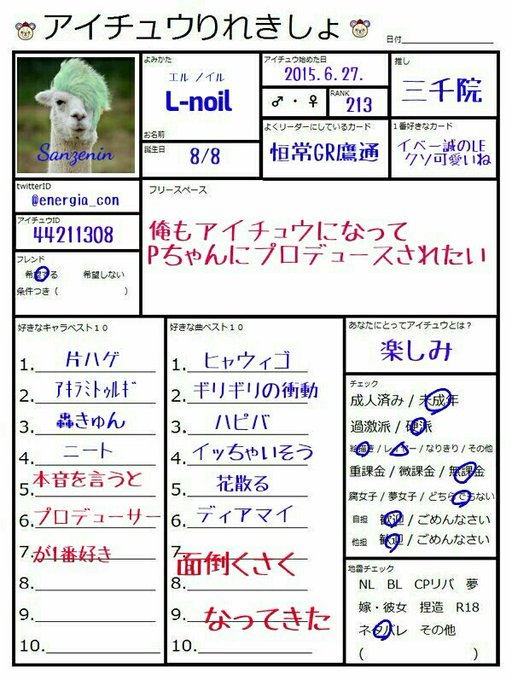 アイチュウりれきしょ
日付
よみかた
エル ノイル
L-noil
お名前
誕生日
8/8
アイチュウ始めた日
2015.6.27.
♂・♀
RANK
213
推し
三千院
よくリーダーにしているカード
恒常GR鷹通
1番好きなカード
イベー誠のLE
クソ可愛いね
Sanzenin
twitterID
@energia_con
アイチュウID
44211308
フレンド
希望する 希望しない
条件つき ( )
フリースペース
俺もアイチュウになって
Pちゃんにプロデュースされたい
好きなキャラベスト10
1. 片ハゲ
2. アキラミトゥルギ
3. 轟きゅん
4. ニート
5. 本音を言うと
6. プロデューサー
7. が1番好き
8.
9.
10.
好きな曲ベスト10
1. ヒャウィゴ
2. ギリギリの衝動
3. ハピバ
4. イッちゃいそう
5. 花散る
6. ディアマイ
7. 面倒くさく
8.
9. なってきた
10.
あなたにとってアイチュウとは?
楽しみ
チェック
成人済み / 未成年
過激派 / 硬派
絵描き / レイヤー / なりきり / その他
重課金 / 微課金 / 無課金
腐女子 / 夢女子 / どちらでもない
自担 歓迎 / ごめんなさい
他担 歓迎 / ごめんなさい
地雷チェック
NL BL CPリバ 夢
嫁・彼女 捏造 R18
ネタバレ その他
( )